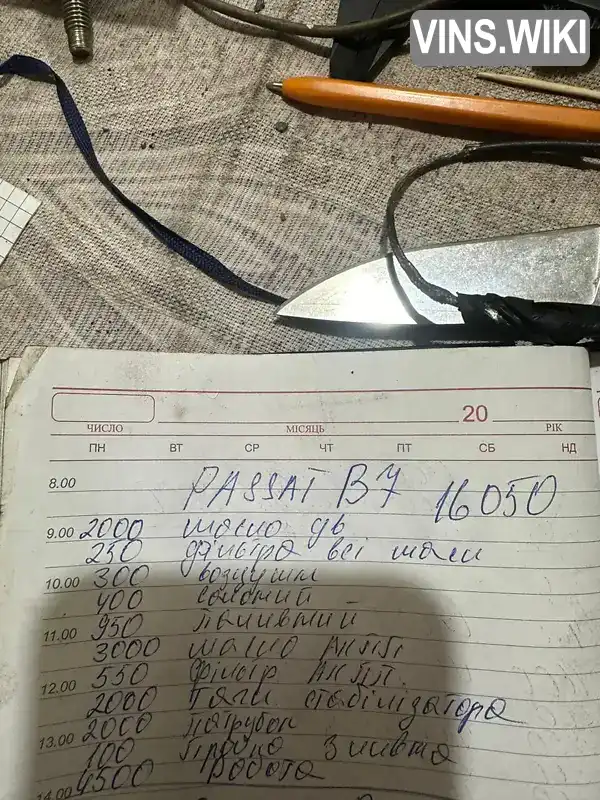 VINS.WIKI
20
ЧИСЛО МІСЯЦЬ РІК
ПН ВТ СР ЧТ ПТ СБ НД
8.00 PASSAT B7 16050
9.00 2000 масло дв
250 фільтра всі масл
10.00 300 воздушн
400 салоний
11.00 950 паливний
3000 масло АКПП
12.00 550 фільтр АКПП.
2000 Тяги стабілізатора
13.00 2000 патрубок
100 З нивта
14.00 4500 Робота